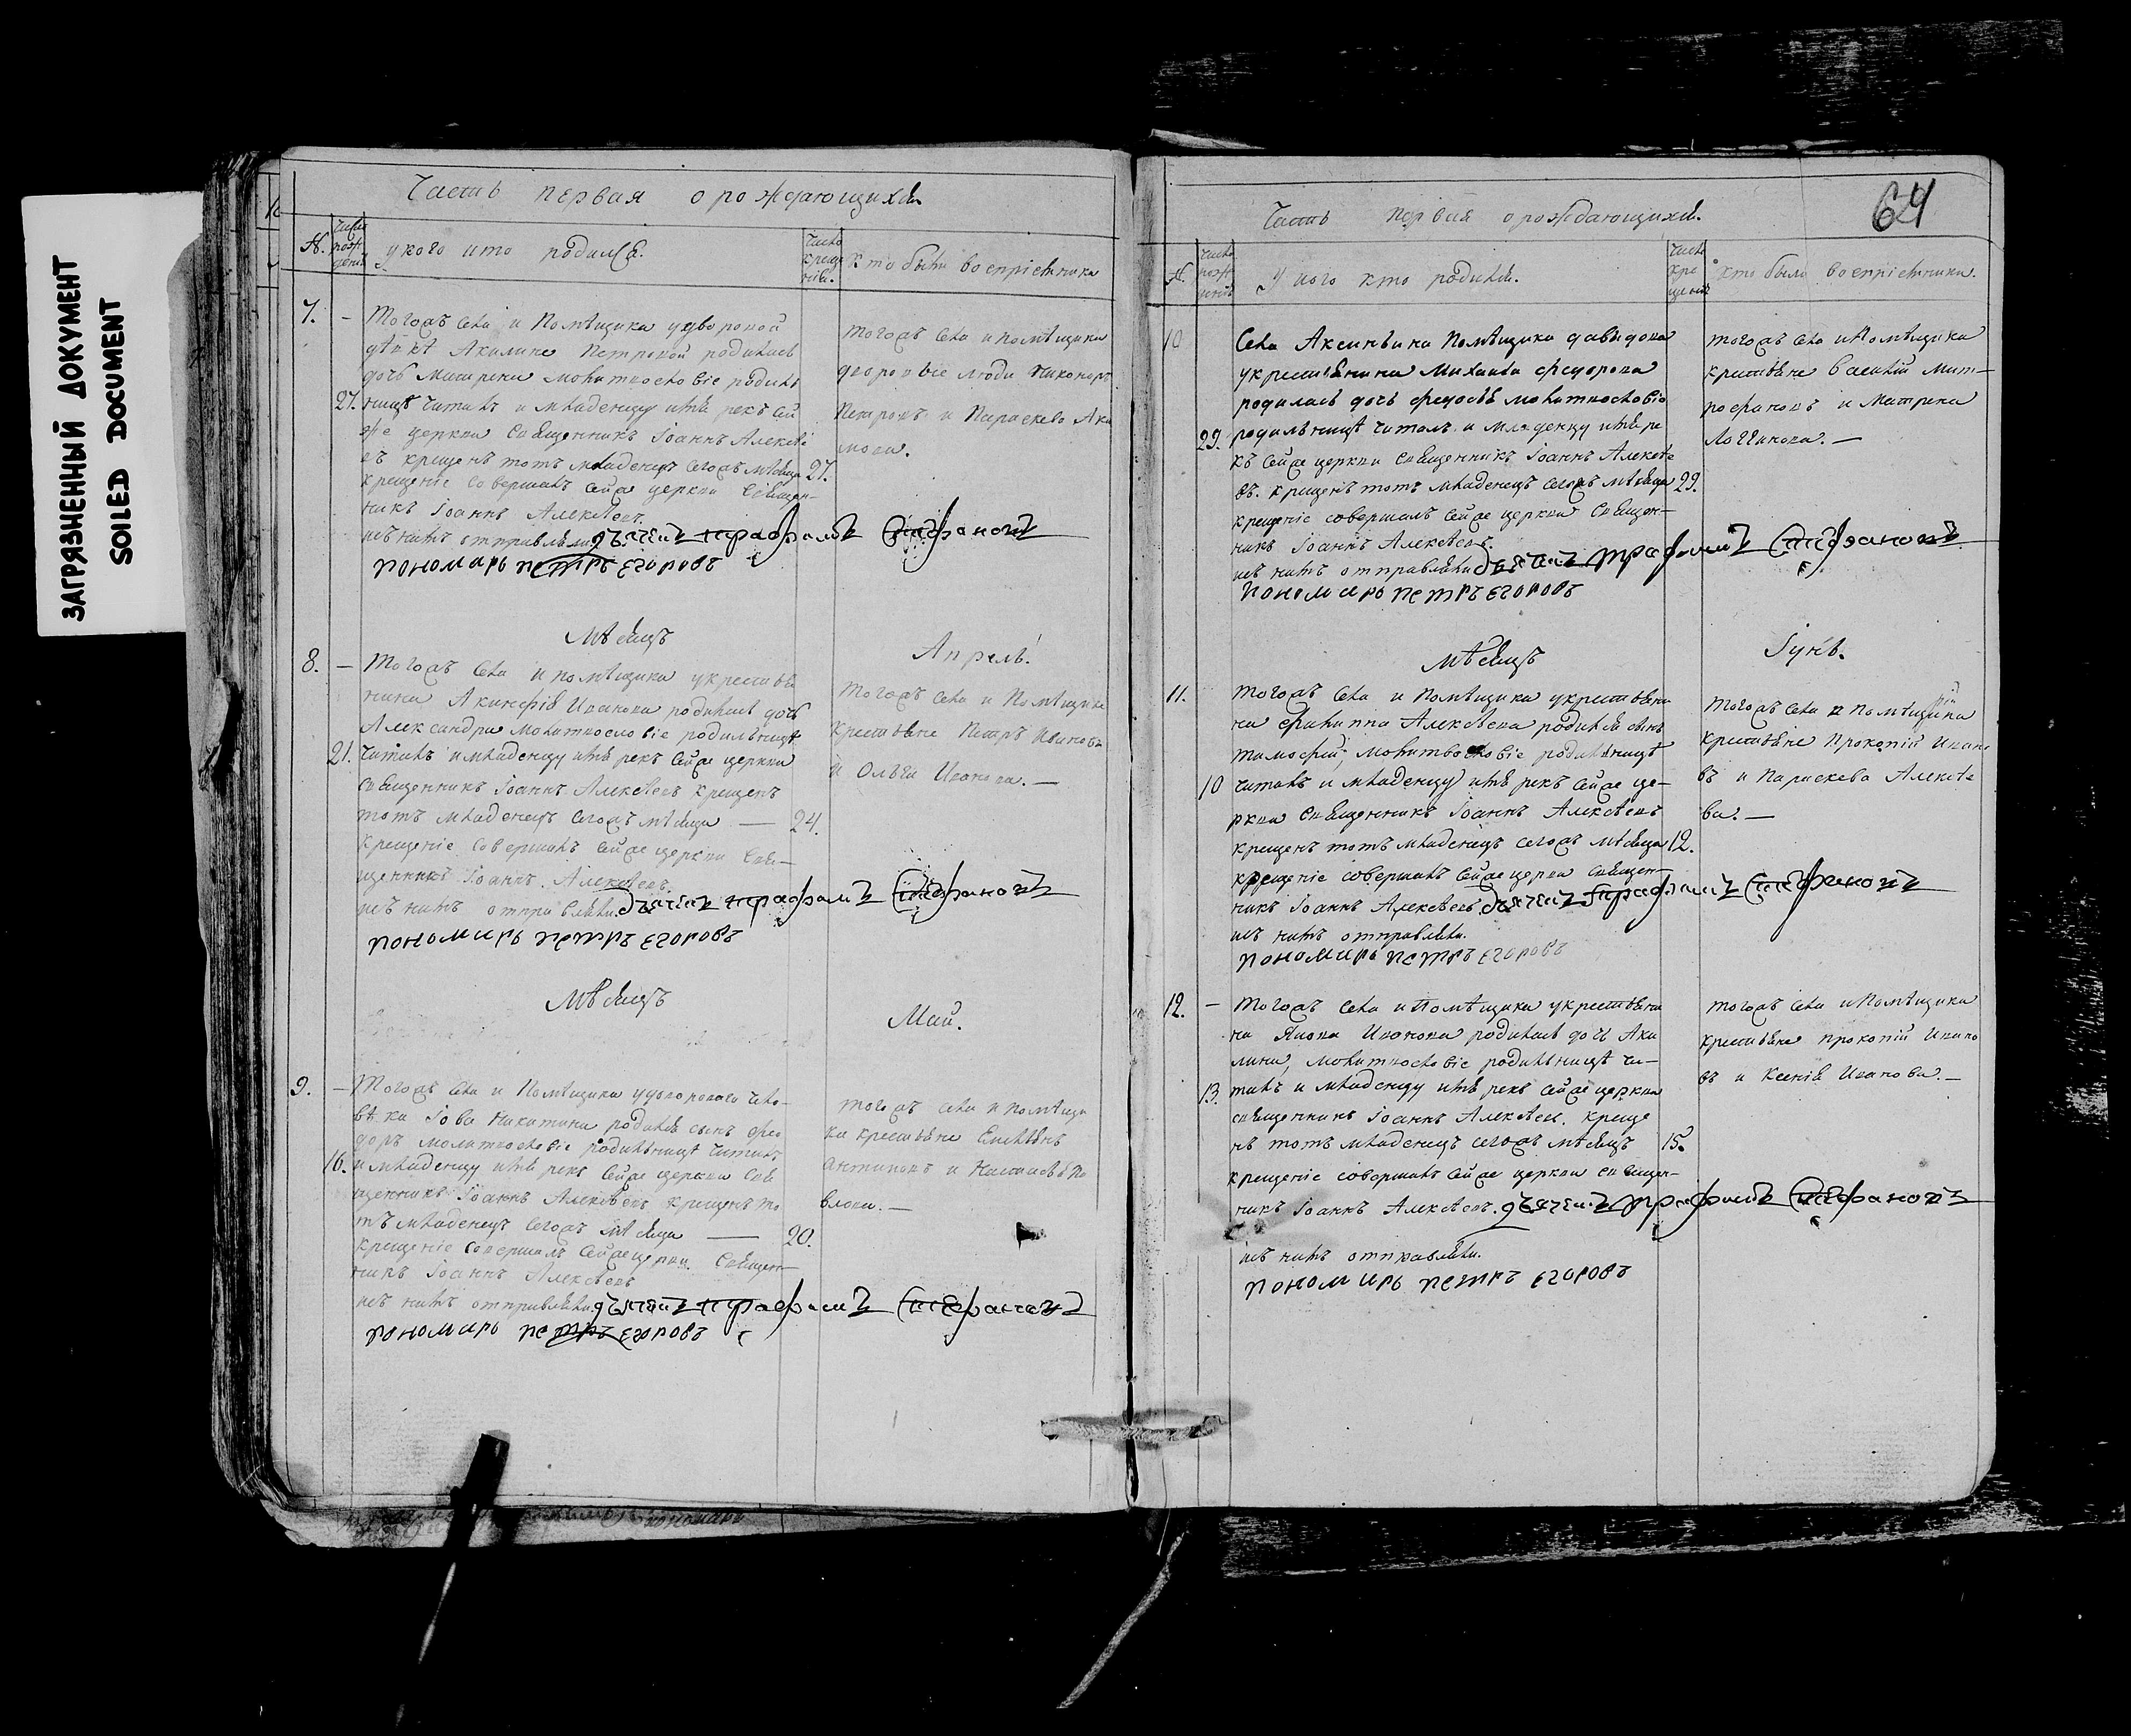 ЗАГРЯЗНЕННЫЙ ДОКУМЕНТ
SOILED DOCUMENT
Часть первая о рождающихся
№. Число рождения у кого кто родился. Число крещения. Кто были воспріемники
7. – тогожъ села и помѣщика у дворовой
дѣвки Акилине Петровой родилась
дочь Матрена молитвословіе родиль
27. ницѣ читалъ и младенцу имя рекъ сей
же церкви священникъ Іоаннъ Алексѣе
въ крещенъ тотъ младенецъ сегожъ мѣсяца 27.
крещеніе совершалъ сейже церкви священ-
никъ Іоаннъ Алексѣевъ.
при немъ дьячекъ трафимъ Стефановъ
пономарь петръ егоровъ
тогожъ села и помѣщика
дворовые люди никоноръ
Петровъ и Параскева Аки
мова.
Мѣсяцъ Апрель.
8. – тогожъ села и помѣщика у крестья
нина Акинфія Иванова родилась дочь
Александра молитвословіе родильницѣ
21. читалъ и младенцу имя рекъ сейже церкви
священникъ Іоаннъ Алексѣевъ крещенъ
тотъ младенецъ сегожъ мѣсяца — 24.
крещеніе совершалъ сейже церкви свя-
щенникъ Іоаннъ Алексѣевъ.
дьячекъ трафимъ Стефановъ
пономарь петръ егоровъ
тогожъ села и помѣщика
крестьяне Петръ Ивановъ
и Ольга Иванова. —
Мѣсяцъ Май.
9. – тогожъ села и помѣщика у двороваго чело-
вѣка Іова Никитина родился сынъ Фео
доръ молитвословіе родильницѣ читалъ
16. и младенцу имя рекъ сейже церкви свя
щенникъ Іоаннъ Алексѣевъ крещенъ то
тъ младенецъ сегожъ мѣсяца — 20.
крещеніе совершалъ сейже церкви священ-
никъ Іоаннъ Алексѣевъ
дьячекъ трафимъ Стефановъ
пономарь петръ егоровъ
тогожъ села и помѣщи
ка крестьяне
Антиповъ и Настасья Па
влова. —
64
Часть первая о рождающихся.
№. Число рожденія У кого кто родился. Число крещенія кто были воспріемники.
10 Села Аксиньина помѣщика давыдова
у крестьянина Михаила федорова
родилась дочь федосья молитвословіе
29. родильницѣ читалъ и младенцу имя ре
къ сейже церкви священникъ Іоаннъ Алексѣе
въ. крещенъ тотъ младенецъ сегожъ мѣсяца 29.
крещеніе совершалъ сейже церкви священ-
никъ Іоаннъ Алексѣевъ.
дьячекъ трафимъ Стефановъ
пономарь петръ егоровъ
тогожъ села и помѣщика
крестьяне Василій Мит-
рофановъ и Матрена
Логинова. —
Мѣсяцъ Іунь.
11. тогожъ села и помѣщика у крестьяни
на филиппа Алексѣева родился сынъ
тимофей, молитвословіе родильницѣ
10 читалъ и младенцу имя рекъ сейже це-
ркви священникъ Іоаннъ Алексѣевъ
крещенъ тотъ младенецъ сегожъ мѣсяца 12.
крещеніе совершалъ сейже церкви священ-
никъ Іоаннъ Алексѣевъ дьячекъ трафимъ Стефановъ
пономарь петръ егоровъ
тогожъ села и помѣщика
крестьяне Прокопій Ивано
въ и Параскева Алексѣе
ва. —
12. – тогожъ села и помѣщика у крестьяни
на Якова Иванова родилась дочь Аки
лина, молитвословіе родильницѣ чи-
13. талъ и младенцу имя рекъ сейже церкви
священникъ Іоаннъ Алексѣевъ. креще
нъ тотъ младенецъ сегожъ мѣсяцъ 15.
крещеніе совершалъ сейже церкви священ-
никъ Іоаннъ Алексѣевъ. дьячекъ трафимъ Стефановъ
пономарь петръ егоровъ
тогожъ села и помѣщика
крестьяне прокопій Ивано
въ и Ксенія Иванова. —